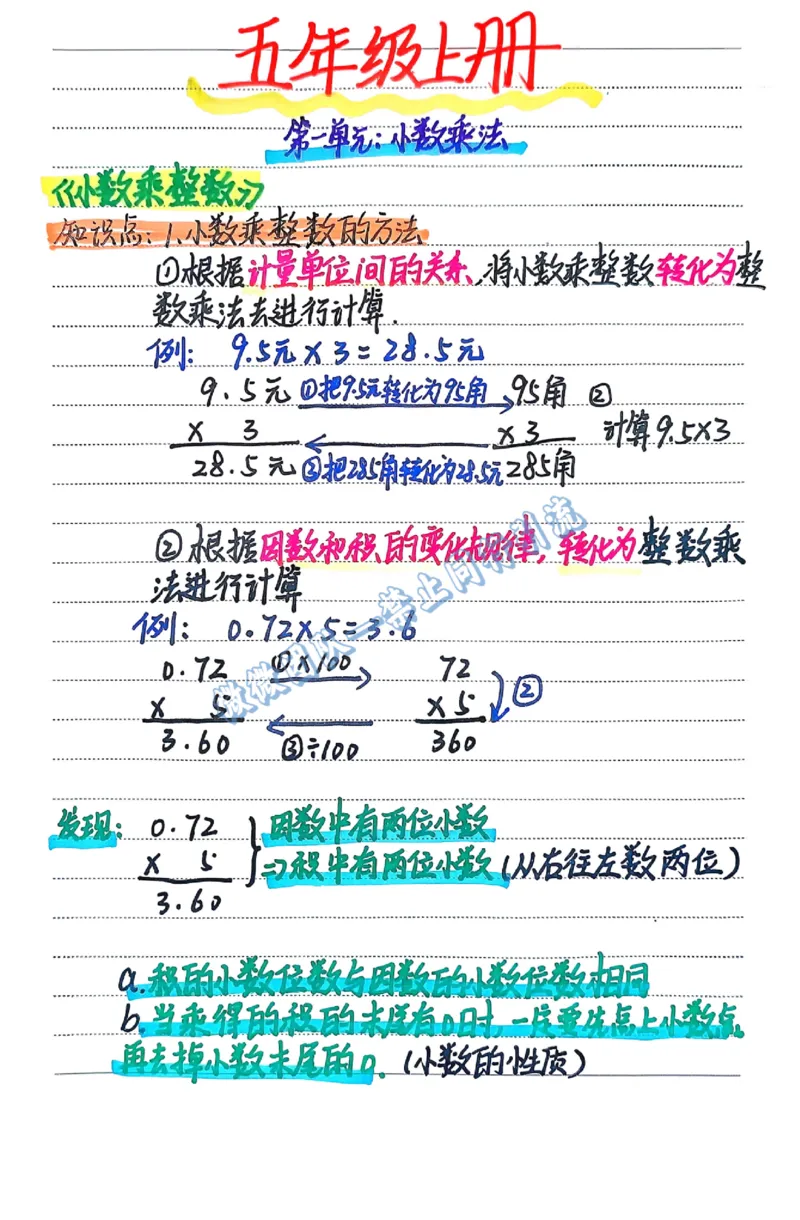 五年级上册
第一单元:小数乘法
《小数乘整数》
知识点:1.小数乘整数的方法
①根据计量单位间的关系,将小数乘整数转化为整
数乘法去进行计算.
例: 9.5元×3=28.5元
9.5元 ①把9.5元转化为95角 95角 ②
× 3 ×3 计算9.5×3
28.5元 ③把285角转化为28.5元 285角
②根据因数和积的变化规律,转化为整数乘
法进行计算
例: 0.72×5=3.6
0.72 ①×100 72
× 5 ×5 ②
3.60 ③÷100 360
发现: 0.72 因数中有两位小数
× 5 ⇒积中有两位小数(从右往左数两位)
3.60
a.积的小数位数与因数的小数位数相同
b.当乘得的积的末尾有0时,一定要先点上小数点,
再去掉小数末尾的0.(小数的性质)
微微团队—禁止同行引流